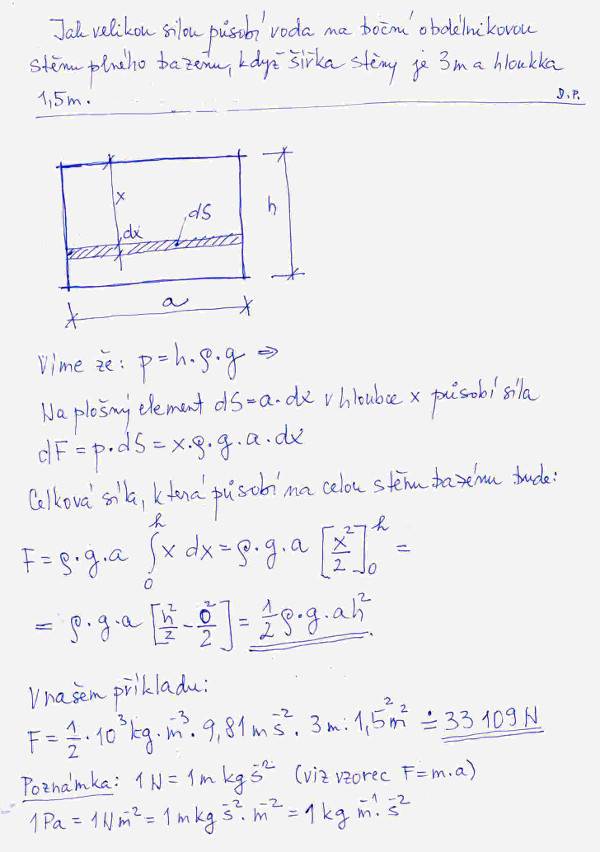 Jak velikou silou působí voda na boční obdélníkovou
stěnu plného bazénu, když šířka stěny je 3m a hloubka
1,5m.
D.P.
x
dx
dS
h
a
Víme že: p = h·ρ·g ⇒
Na plošný element dS = a·dx v hloubce x působí síla
dF = p·dS = x·ρ·g·a·dx
Celková síla, která působí na celou stěnu bazénu bude:
F = ρ·g·a ∫₀ʰ x dx = ρ·g·a [x²/2]₀ʰ =
= ρ·g·a [h²/2 - 0²/2] = 1/2 ρ·g·ah²
V našem příkladu:
F = 1/2 · 10³ kg·m⁻³ · 9,81 m s⁻² · 3m · 1,5² m² ≐ 33 109 N
Poznámka: 1N = 1 m kg s⁻² (viz vzorec F = m·a)
1Pa = 1N m⁻² = 1 m kg s⁻² · m⁻² = 1 kg m⁻¹ · s⁻²